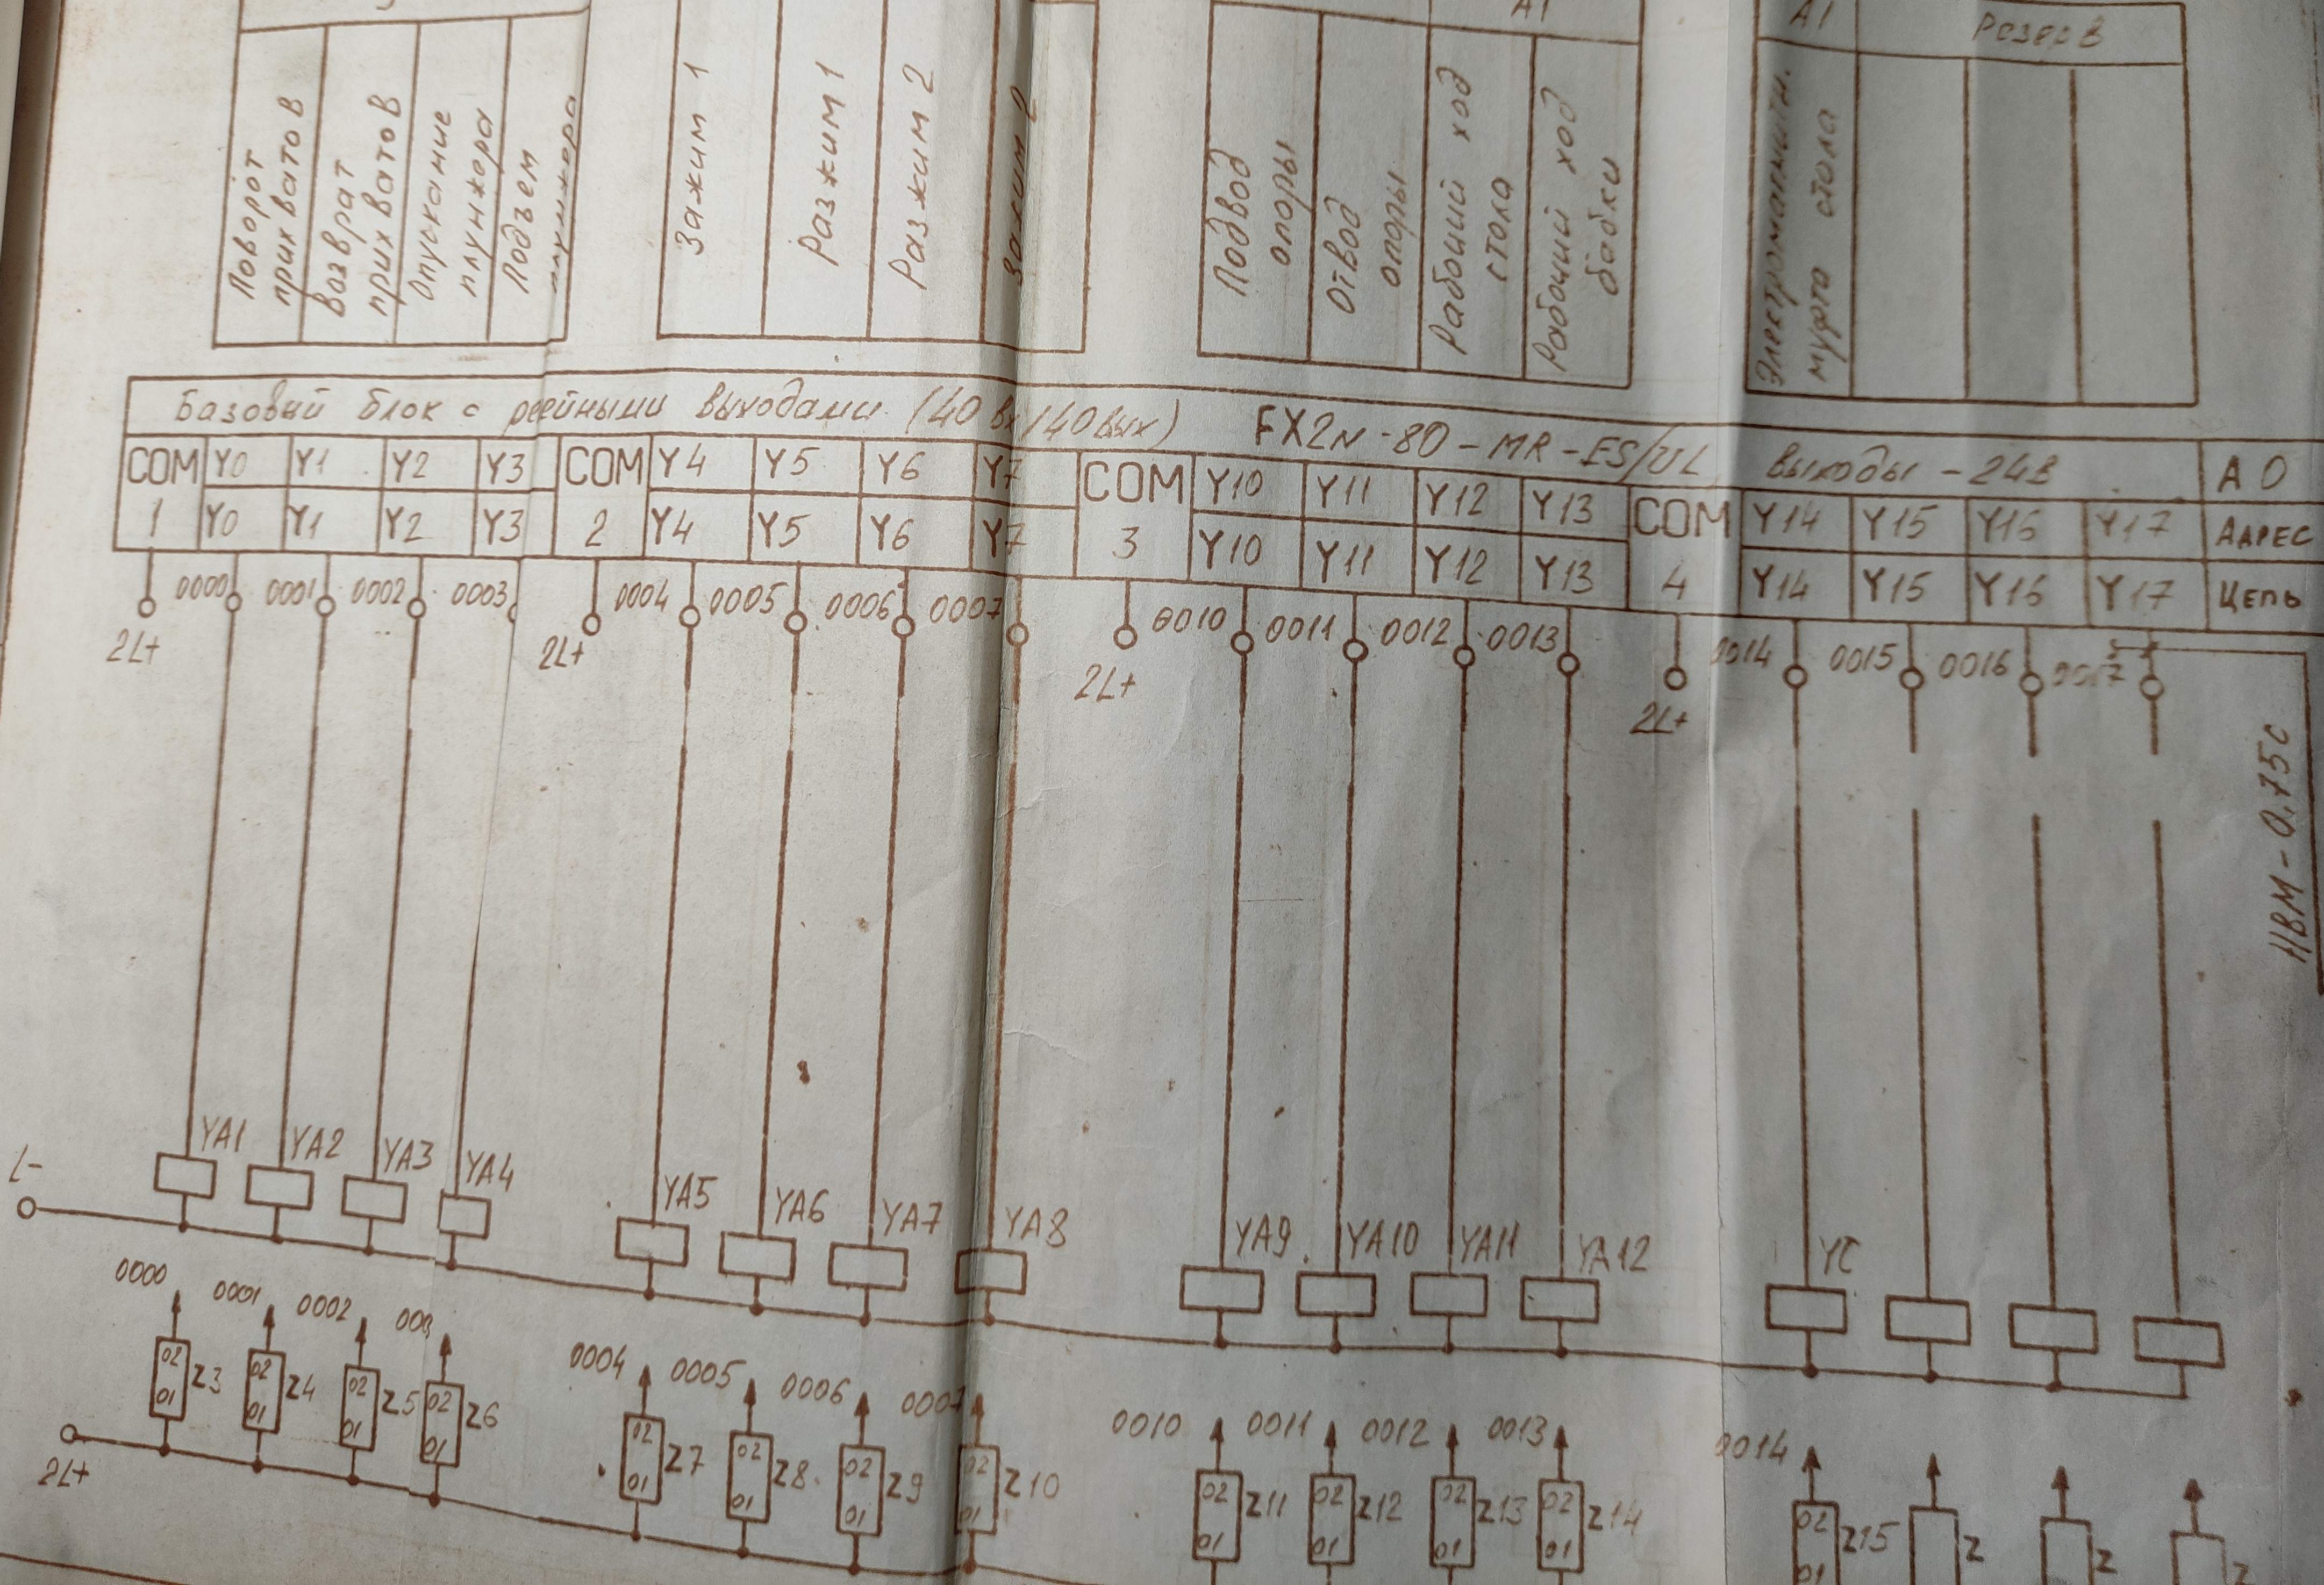 А1
А1
Резерв
Поворот
прихватов
Возврат
прихватов
Опускание
плунжора
Подъем
плунжора
Зажим 1
Разжим 1
Разжим 2
Зажим 2
Подвод
опоры
Отвод
опоры
Рабочий ход
стола
Рабочий ход
бабки
Электромагнитн.
муфта стола
Базовый блок с релейными выходами (40 вх/40 вых) FX2N-80-MR-ES/UL выходы - 24В А0
COM Y0 Y1 Y2 Y3 COM Y4 Y5 Y6 Y7 COM Y10 Y11 Y12 Y13 COM Y14 Y15 Y16 Y17 Адрес
1 Y0 Y1 Y2 Y3 2 Y4 Y5 Y6 Y7 3 Y10 Y11 Y12 Y13 4 Y14 Y15 Y16 Y17 Цепь
0000 0001 0002 0003 0004 0005 0006 0007 0010 0011 0012 0013 0014 0015 0016 0017
2L+ 2L+ 2L+ 2L+
НВМ-0,75с
L-
YA1 YA2 YA3 YA4 YA5 YA6 YA7 YA8 YA9 YA10 YA11 YA12 YC
0000 0001 0002 000 0004 0005 0006 0007 0010 0011 0012 0013 0014
02 02 02 02 02 02 02 02 02 02 02 02 02
Z3 Z4 Z5 Z6 Z7 Z8 Z9 Z10 Z11 Z12 Z13 Z14 Z15 Z Z Z
01 01 01 01 01 01 01 01 01 01 01 01 01
2L+